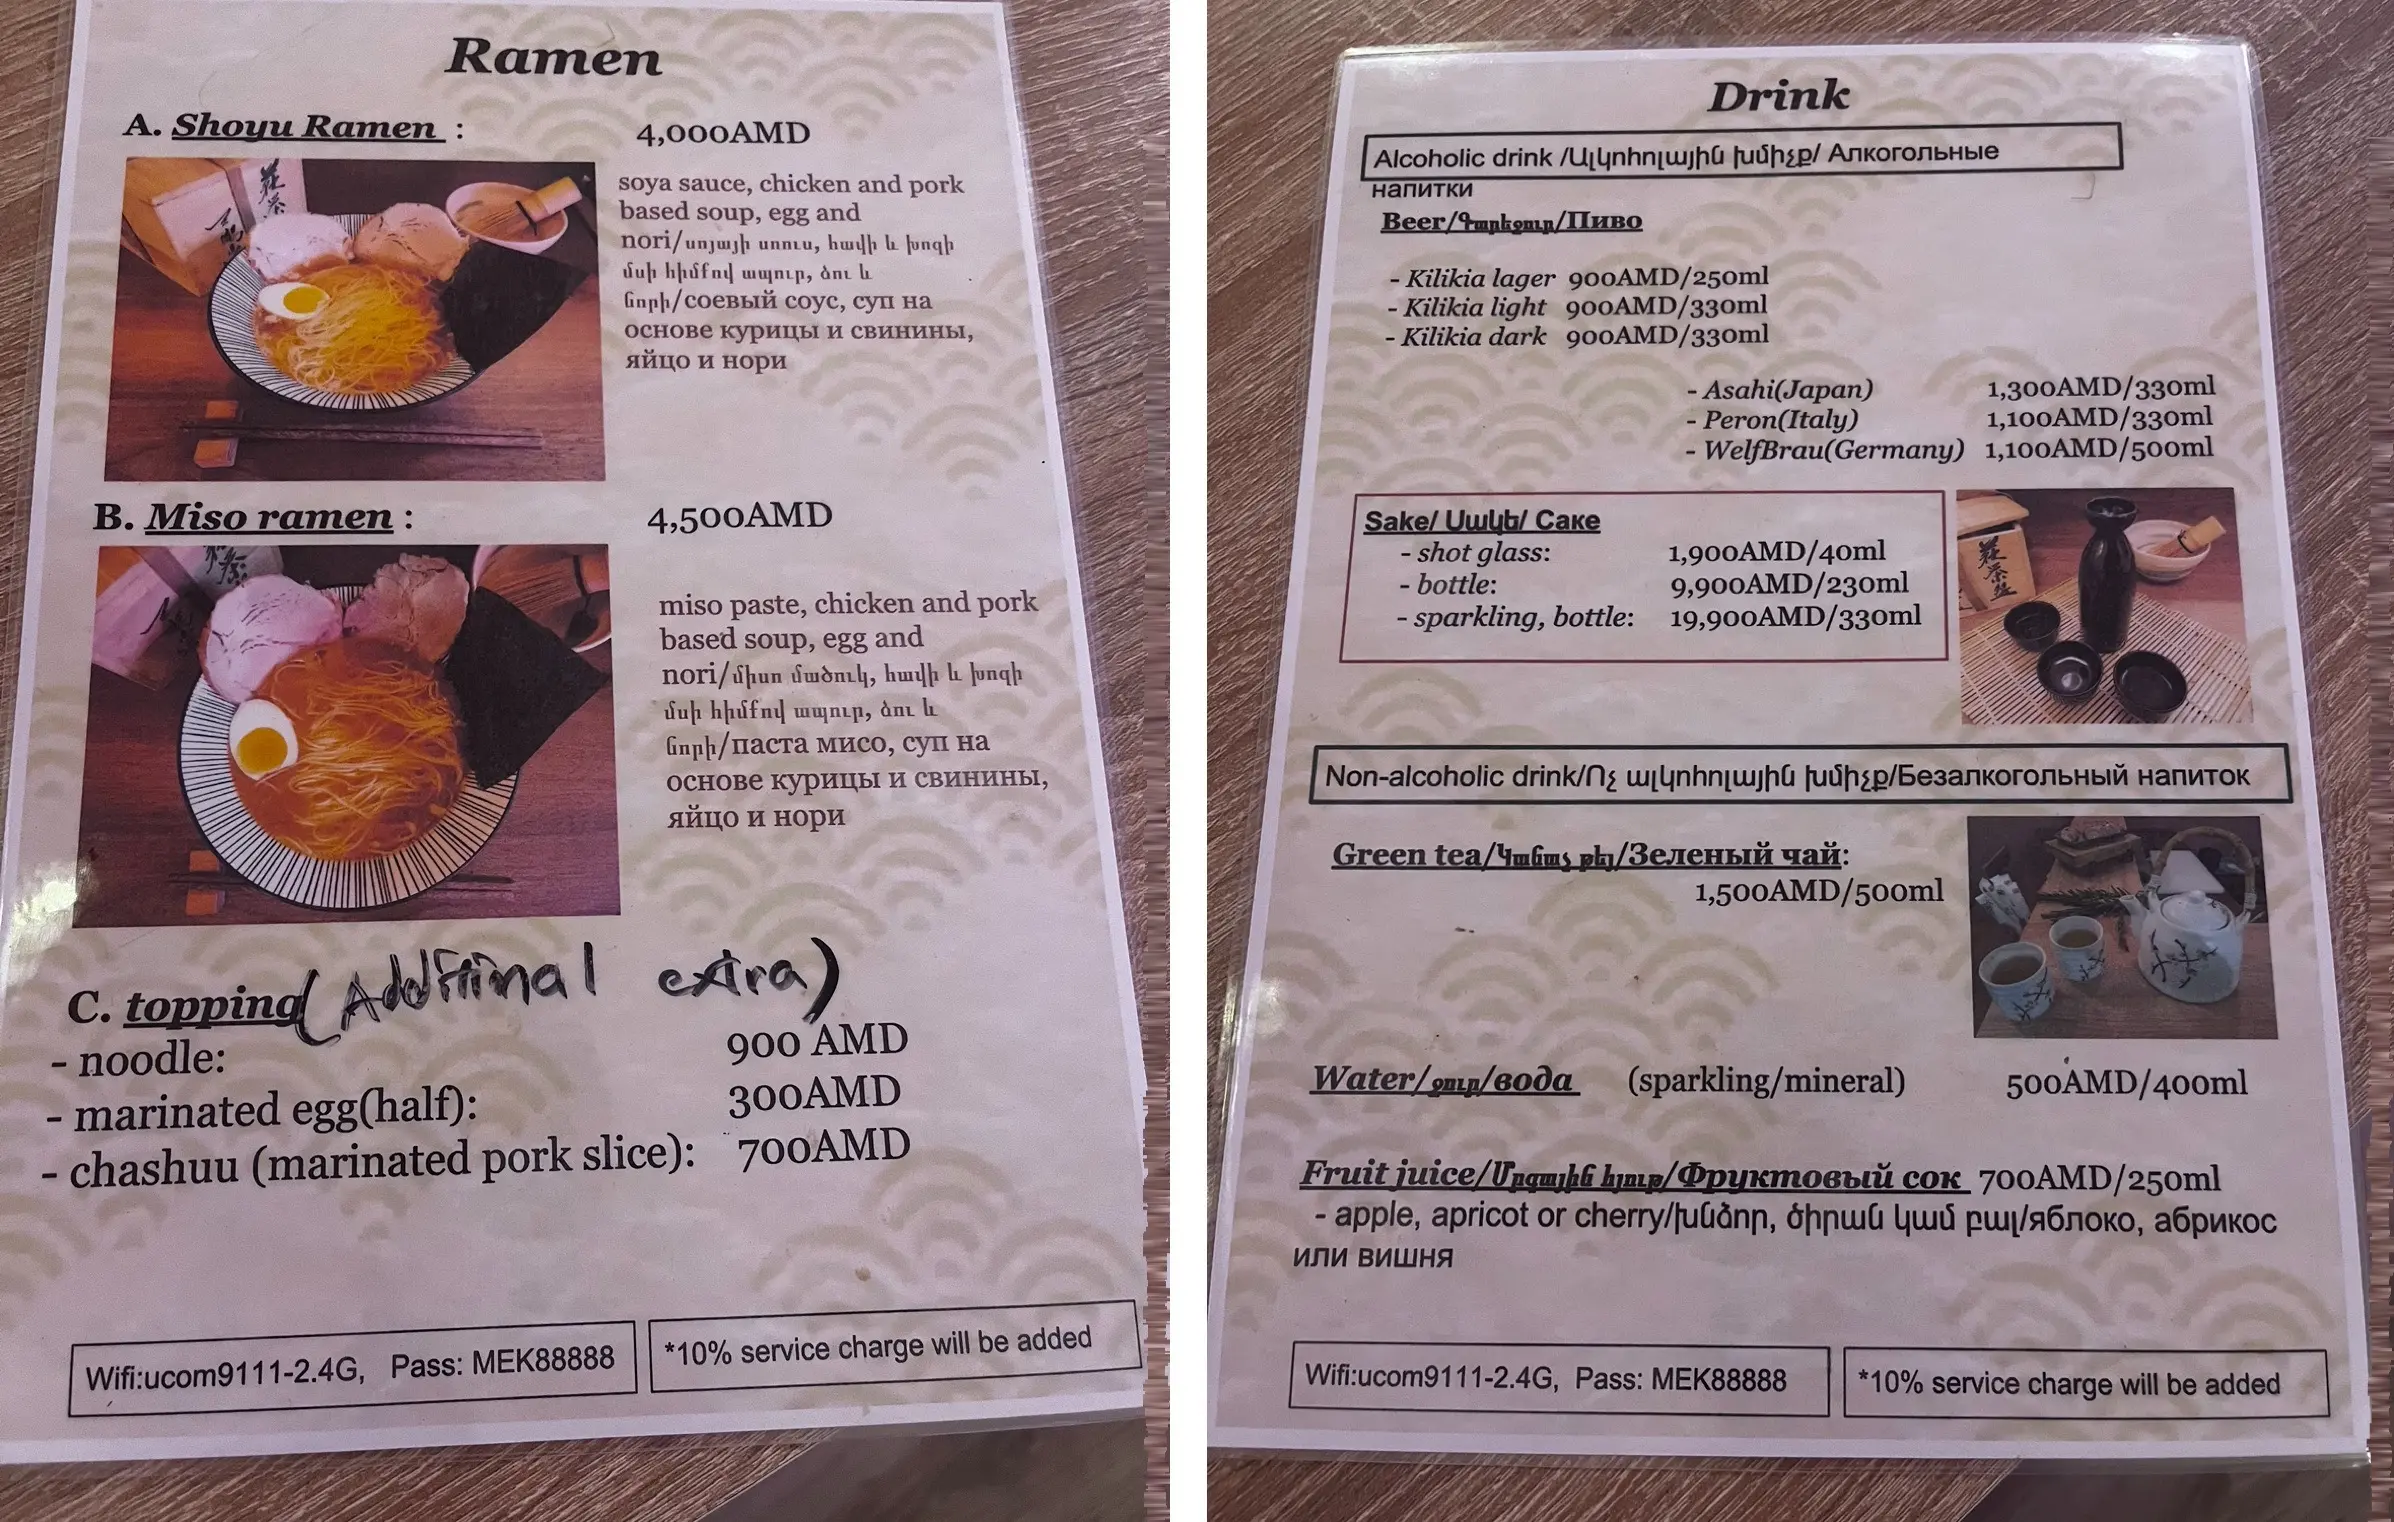 Ramen
A. Shoyu Ramen :
4,000AMD
soya sauce, chicken and pork
based soup, egg and
nori/սոյայի սոուս, հավի և խոզի
մսի հիմքով ապուր, ձու և
նորի/соевый соус, суп на
основе курицы и свинины,
яйцо и нори
B. Miso ramen :
4,500AMD
miso paste, chicken and pork
based soup, egg and
nori/միսո մածուկ, հավի և խոզի
մսի հիմքով ապուր, ձու և
նորի/паста мисо, суп на
основе курицы и свинины,
яйцо и нори
C. topping (Additinal extra)
- noodle: 900 AMD
- marinated egg(half): 300AMD
- chashuu (marinated pork slice): 700AMD
Wifi:ucom9111-2.4G, Pass: MEK88888
*10% service charge will be added
Drink
Alcoholic drink /Ալկոհոլային խմիչք/ Алкогольные
напитки
Beer/Գարեջուր/Пиво
- Kilikia lager 900AMD/250ml
- Kilikia light 900AMD/330ml
- Kilikia dark 900AMD/330ml
- Asahi(Japan) 1,300AMD/330ml
- Peron(Italy) 1,100AMD/330ml
- WelfBrau(Germany) 1,100AMD/500ml
Sake/ Սակե/ Саке
- shot glass: 1,900AMD/40ml
- bottle: 9,900AMD/230ml
- sparkling, bottle: 19,900AMD/330ml
Non-alcoholic drink/Ոչ ալկոհոլային խմիչք/Безалкогольный напиток
Green tea/Կանաչ թեյ/Зеленый чай:
1,500AMD/500ml
Water/ջուր/вода (sparkling/mineral) 500AMD/400ml
Fruit juice/Մրգային հյութ/Фруктовый сок 700AMD/250ml
- apple, apricot or cherry/խնձոր, ծիրան կամ բալ/яблоко, абрикос
или вишня
Wifi:ucom9111-2.4G, Pass: MEK88888
*10% service charge will be added